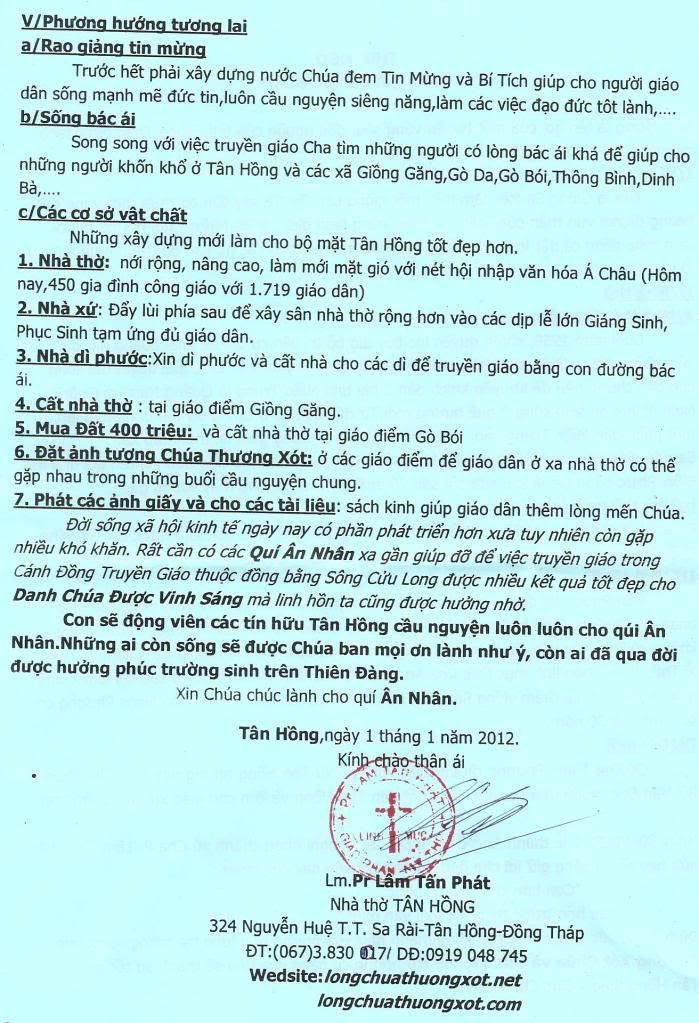 V/Phương hướng tương lai
a/Rao giảng tin mừng
Trước hết phải xây dựng nước Chúa đem Tin Mừng và Bí Tích giúp cho người giáo
dân sống mạnh mẽ đức tin,luôn cầu nguyện siêng năng,làm các việc đạo đức tôt lành,....
b/Sống bác ái
Song song với việc truyền giáo Cha tìm những người có lòng bác ái khá để giúp cho
những người khốn khổ ở Tân Hồng và các xã Giồng Găng,Gò Da,Gò Bói,Thông Bình,Dinh
Bà,....
c/Các cơ sở vật chất
Những xây dựng mới làm cho bộ mặt Tân Hồng tốt đẹp hơn.
1. Nhà thờ: nới rộng, nâng cao, làm mới mặt gió với nét hội nhập văn hóa Á Châu (Hôm
nay,450 gia đình công giáo với 1.719 giáo dân)
2. Nhà xứ: Đẩy lùi phía sau để xây sân nhà thờ rộng hơn vào các dịp lễ lớn Giáng Sinh,
Phục Sinh tạm ứng đủ giáo dân.
3. Nhà dì phước:Xin dì phước và cất nhà cho các dì để truyền giáo bằng con đường bác
ái.
4. Cất nhà thờ : tại giáo điểm Giồng Găng.
5. Mua Đất 400 triệu: và cất nhà thờ tại giáo điểm Gò Bói
6. Đặt ảnh tượng Chúa Thương Xót: ở các giáo điểm để giáo dân ở xa nhà thờ có thể
gặp nhau trong những buổi cầu nguyện chung.
7. Phát các ảnh giấy và cho các tài liệu: sách kinh giúp giáo dân thêm lòng mến Chúa.
Đời sống xã hội kinh tế ngày nay có phần phát triển hơn xưa tuy nhiên còn gặp
nhiều khó khăn. Rất cần có các Quí Ân Nhân xa gần giúp đỡ để việc truyền giáo trong
Cánh Đồng Truyền Giáo thuộc đồng bằng Sông Cửu Long được nhiều kết quả tốt đẹp cho
Danh Chúa Được Vinh Sáng mà linh hồn ta cũng được hưởng nhờ.
Con sẽ động viên các tín hữu Tân Hồng cầu nguyện luôn luôn cho qúi Ân
Nhân.Những ai còn sống sẽ được Chúa ban mọi ơn lành như ý, còn ai đã qua đời
được hưởng phúc trường sinh trên Thiên Đàng.
Xin Chúa chúc lành cho quí Ân Nhân.
Tân Hồng,ngày 1 tháng 1 năm 2012.
Kính chào thân ái
Pr LÂM TẤN PHÁT
LINH MỤC
GIÁO PHẬN MỸ THO
Lm.Pr Lâm Tấn Phát
Nhà thờ TÂN HỒNG
324 Nguyễn Huệ T.T. Sa Rài-Tân Hồng-Đồng Tháp
ĐT:(067)3.830 017/ DĐ:0919 048 745
Wedsite:longchuathuongxot.net
longchuathuongxot.com